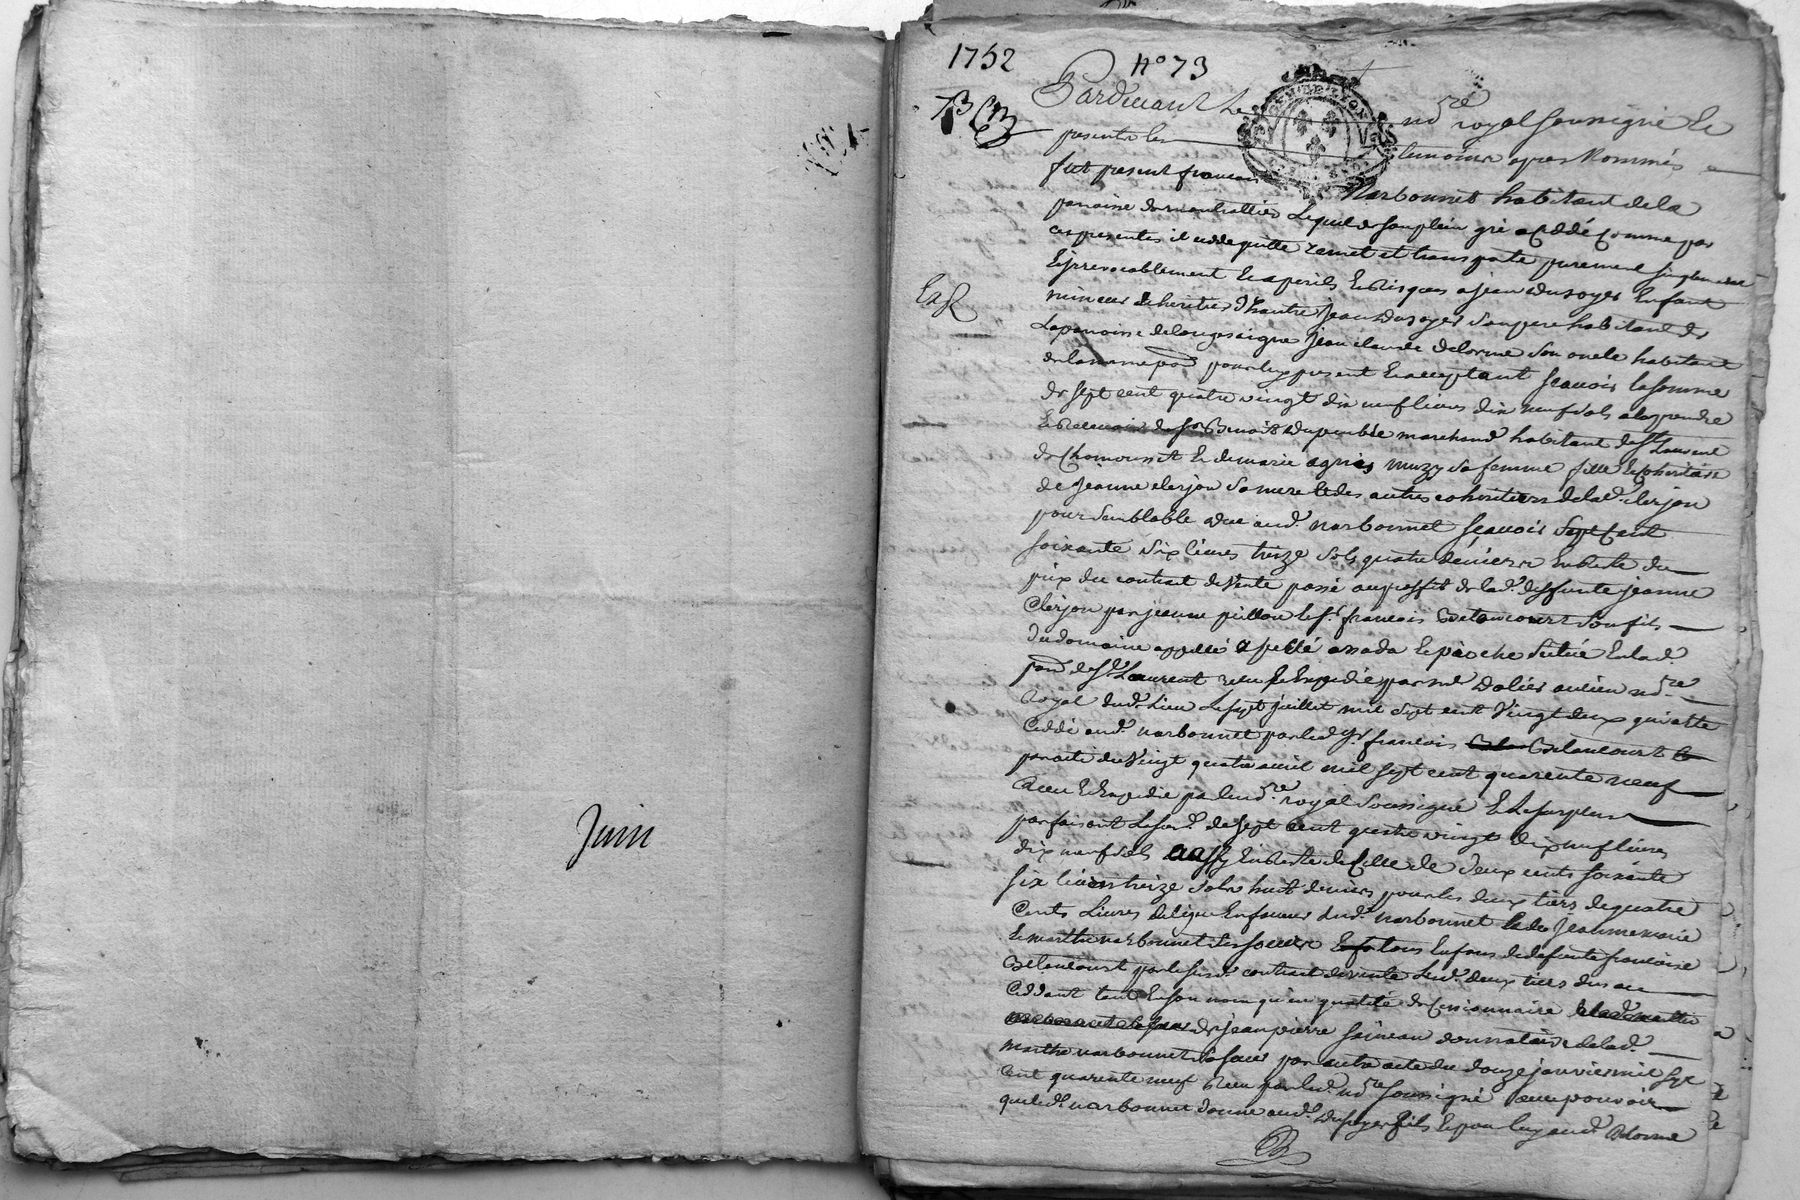 Juin
1752 N° 73
Pardevant Le no.re royal soussigné Et
presents les temoins apres Nommés
fut present francois Narbonnet habitant de la
paroisse de Lequel de son plein gré a Ceddé Comme par
ces presentes il cedde quitte remet et transporte purement simplement
Et irrevocablement Et a perils Et Risques a jean Dusoyer Enfant
mineur de heritier d'hautre jean Dusoyer son pere habitant de
La paroisse de Longessaigne jean claude delorme son oncle habitant
de la meme par. pour luy present Et acceptant Scavoir la somme
de sept cent quatre vingt dix neuf livres dix neuf sols a La prendre
Et Recevoir de Sr Benoist Dupeuble marchand habitant de St Laurent
de Chamousset Et de marie agnies muzy sa femme fille Et Coheritiere
de jeanne clerjon sa mere Et des autres coheritiers de lad. clerjon
pour semblable due aud. narbonnet Scavoir Sept Cent
soixante six livres treize sols quatre deniers En Reste du
prix du contract de Vente passé au proffit de lad. deffunte jeanne
Clerjon par jeanne Et Sr. francois Betancourt son fils
Du domaine appellé apellé Et Situé En lad.
par. de St Laurent receu Et Expedié par me Dalier ancien no.re
Royal dud. Lieu Le sept juillet mil sept cent Vingt deux qui a Esté
Ceddé aud. narbonnet par led. Sr. francois Betancourt
du Vingt quatre avril mil sept cent quarente neuf
Receu Et Expedié par led. no.re royal Soussigné Et Le surplus
parfaisant La sus d. de Sept cent quatre vingt dix neuf livres
dix neuf sols En Reste de Celle de deux cents soixante
six livres treize sols huit deniers pour les deux tiers de quatre
Cents Livres En faveur dud. narbonnet jeanne marie
Et marthe narbonnet Ses soeurs tous Enfans de defunte francoise
Betancourt par le susd. contract de vente Lesd. deux tiers dus au
Ceddant tant En son nom qu'en qualité de Cessionnaire
de jean pierre donnataire de lad.
marthe narbonnet sa soeur par autre acte du douze janvier mil sept
Cent quarente neuf receu par led. no.re soussigné avec pouvoir
que led. narbonnet donne aud. Dusoyer fils Et pour luy aud. Delorme